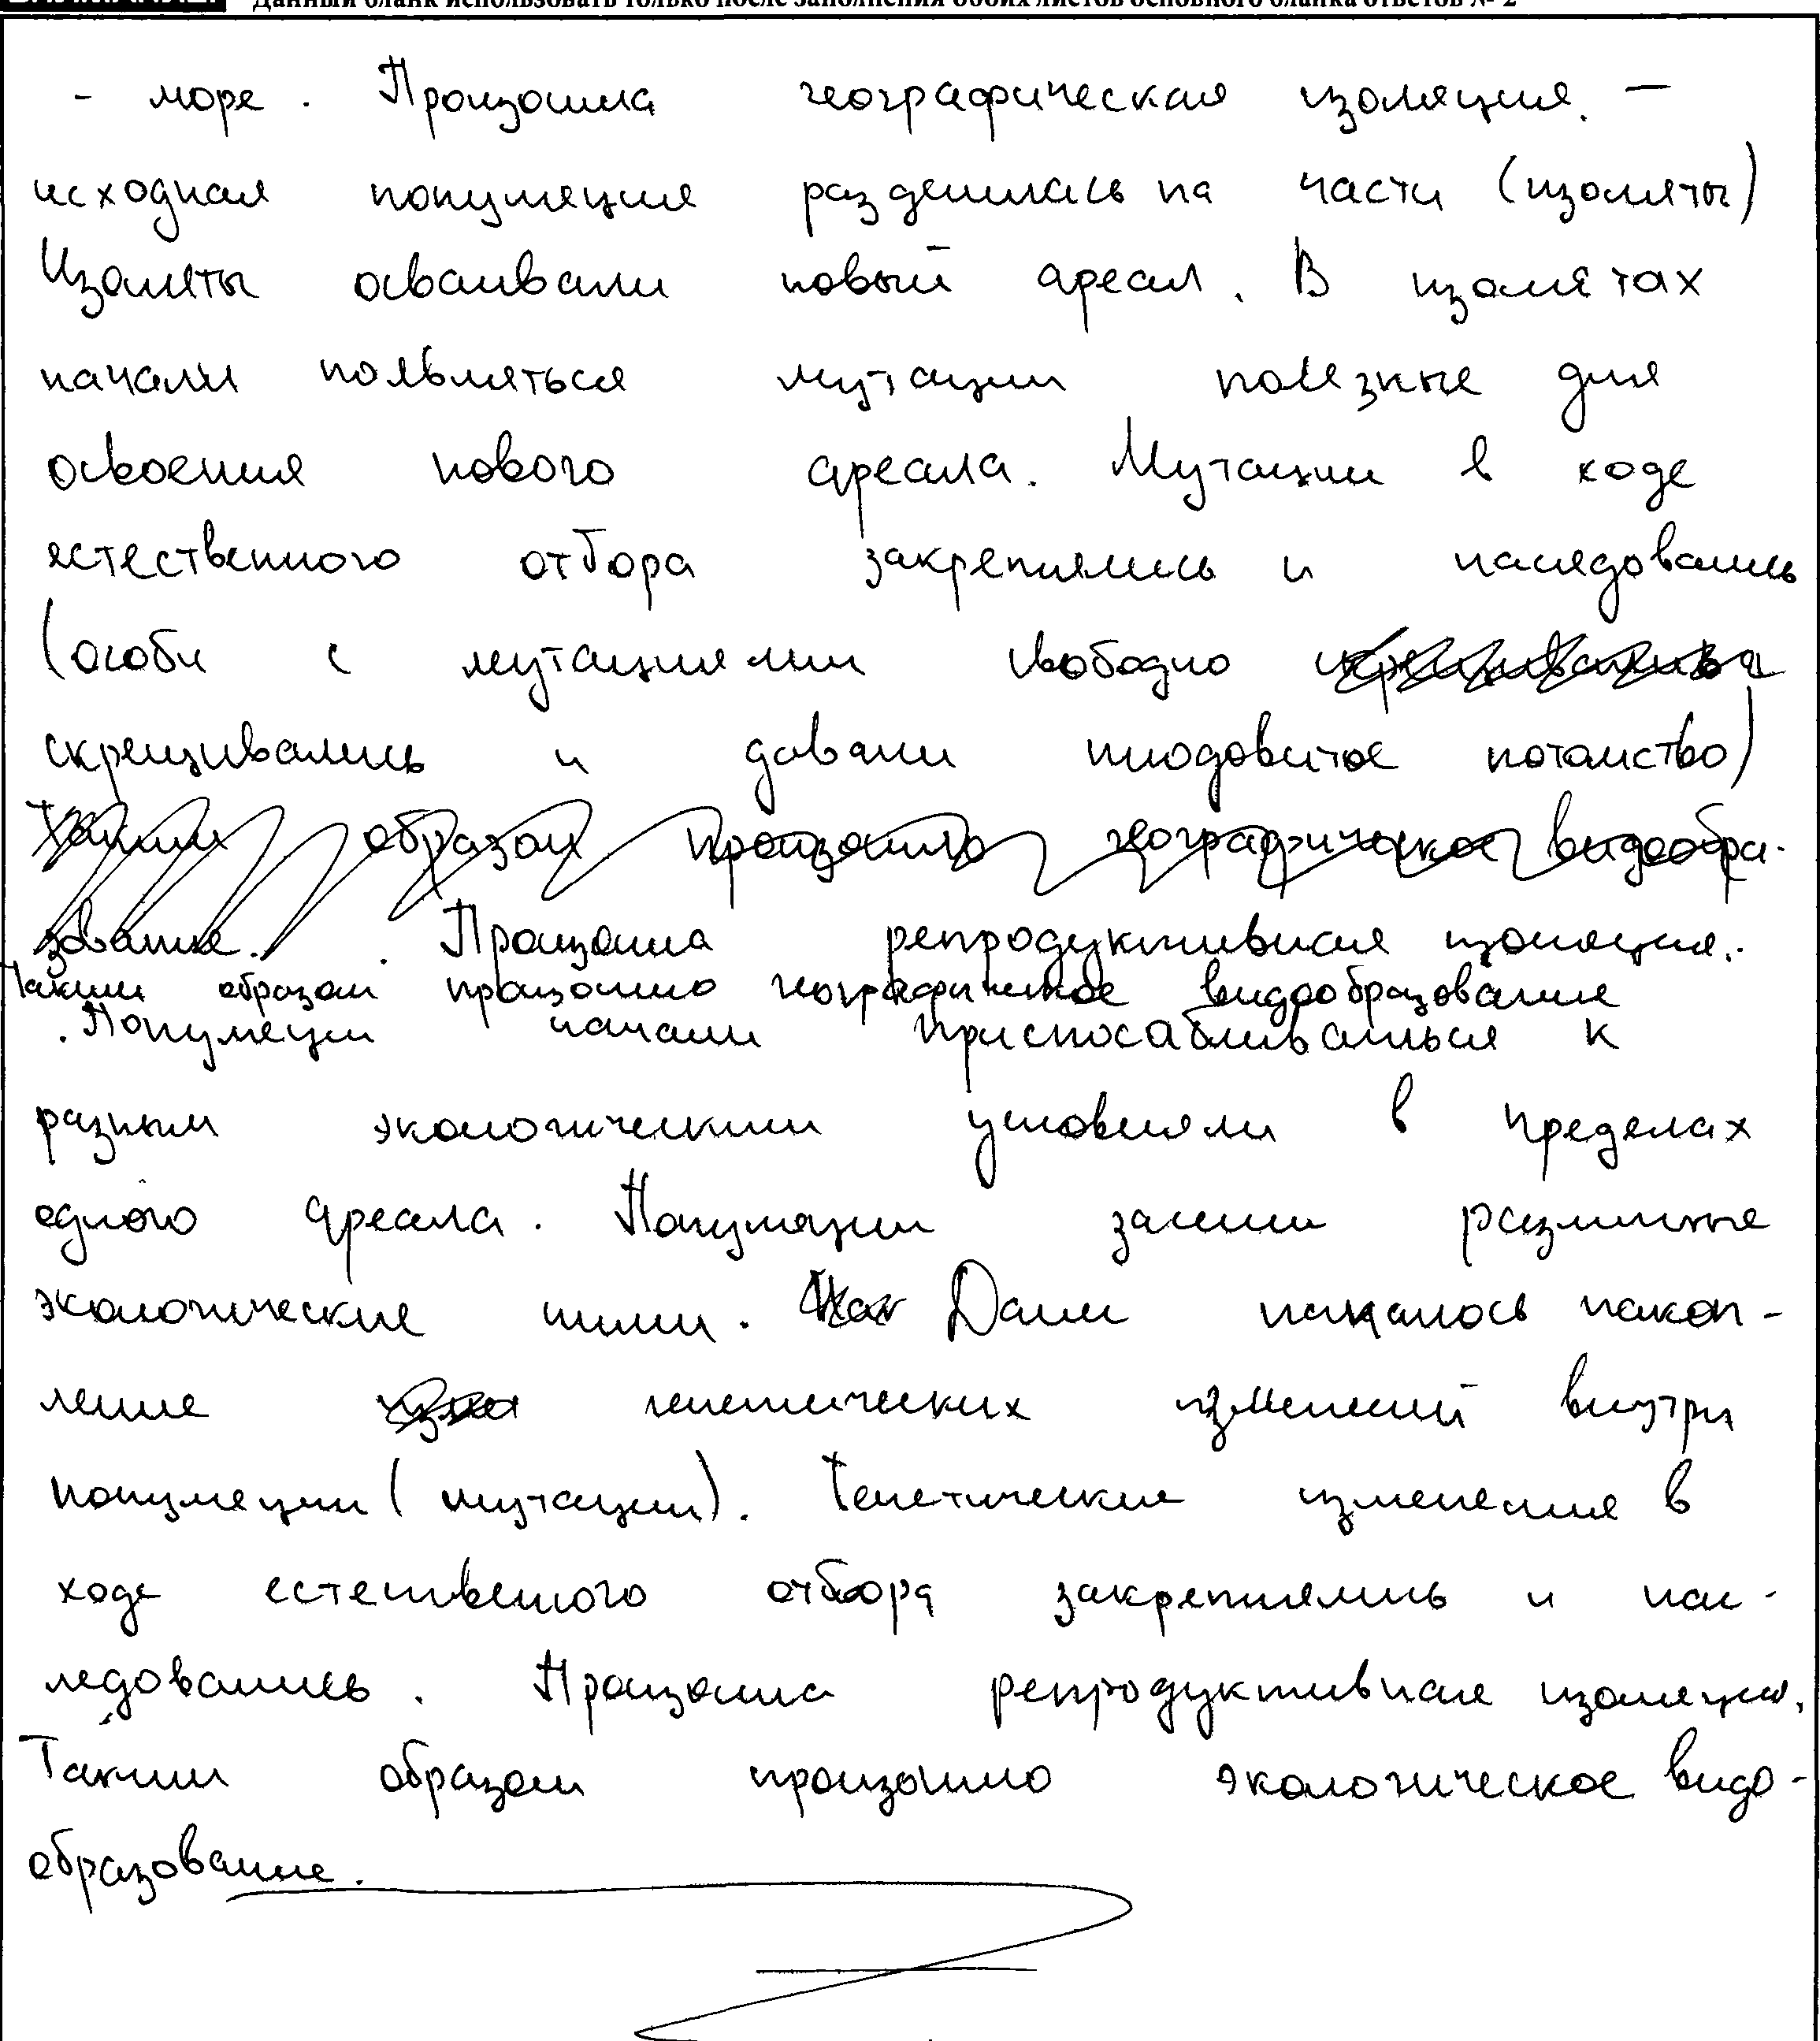 Данный бланк использовать только после заполнения обоих листов основного бланка ответов № 2
- море. Произошла географическая изоляция. —
исходная популяция разделилась на части (изоляты)
Изоляты осваивали новый ареал. В изолятах
начали появляться мутации полезные для
освоения нового ареала. Мутации в ходе
естественного отбора закреплялись и наследовались
(особи с мутациями свободно
скрещивались и давали плодовитое потомство)
Таким образом произошло географическое видообра-
зование. . Произошла репродуктивная изоляция.
Таким образом произошло географическое видообразование
. Популяции начали приспосабливаться к
разным экологическим условиям в пределах
одного ареала. Популяции заняли различные
экологические ниши. Далее началось накоп-
ление генетических изменений внутри
популяции (мутации). Генетические изменения в
ходе естественного отбора закреплялись и нас-
ледовались. Произошла репродуктивная изоляция.
Таким образом произошло экологическое видо-
образование.